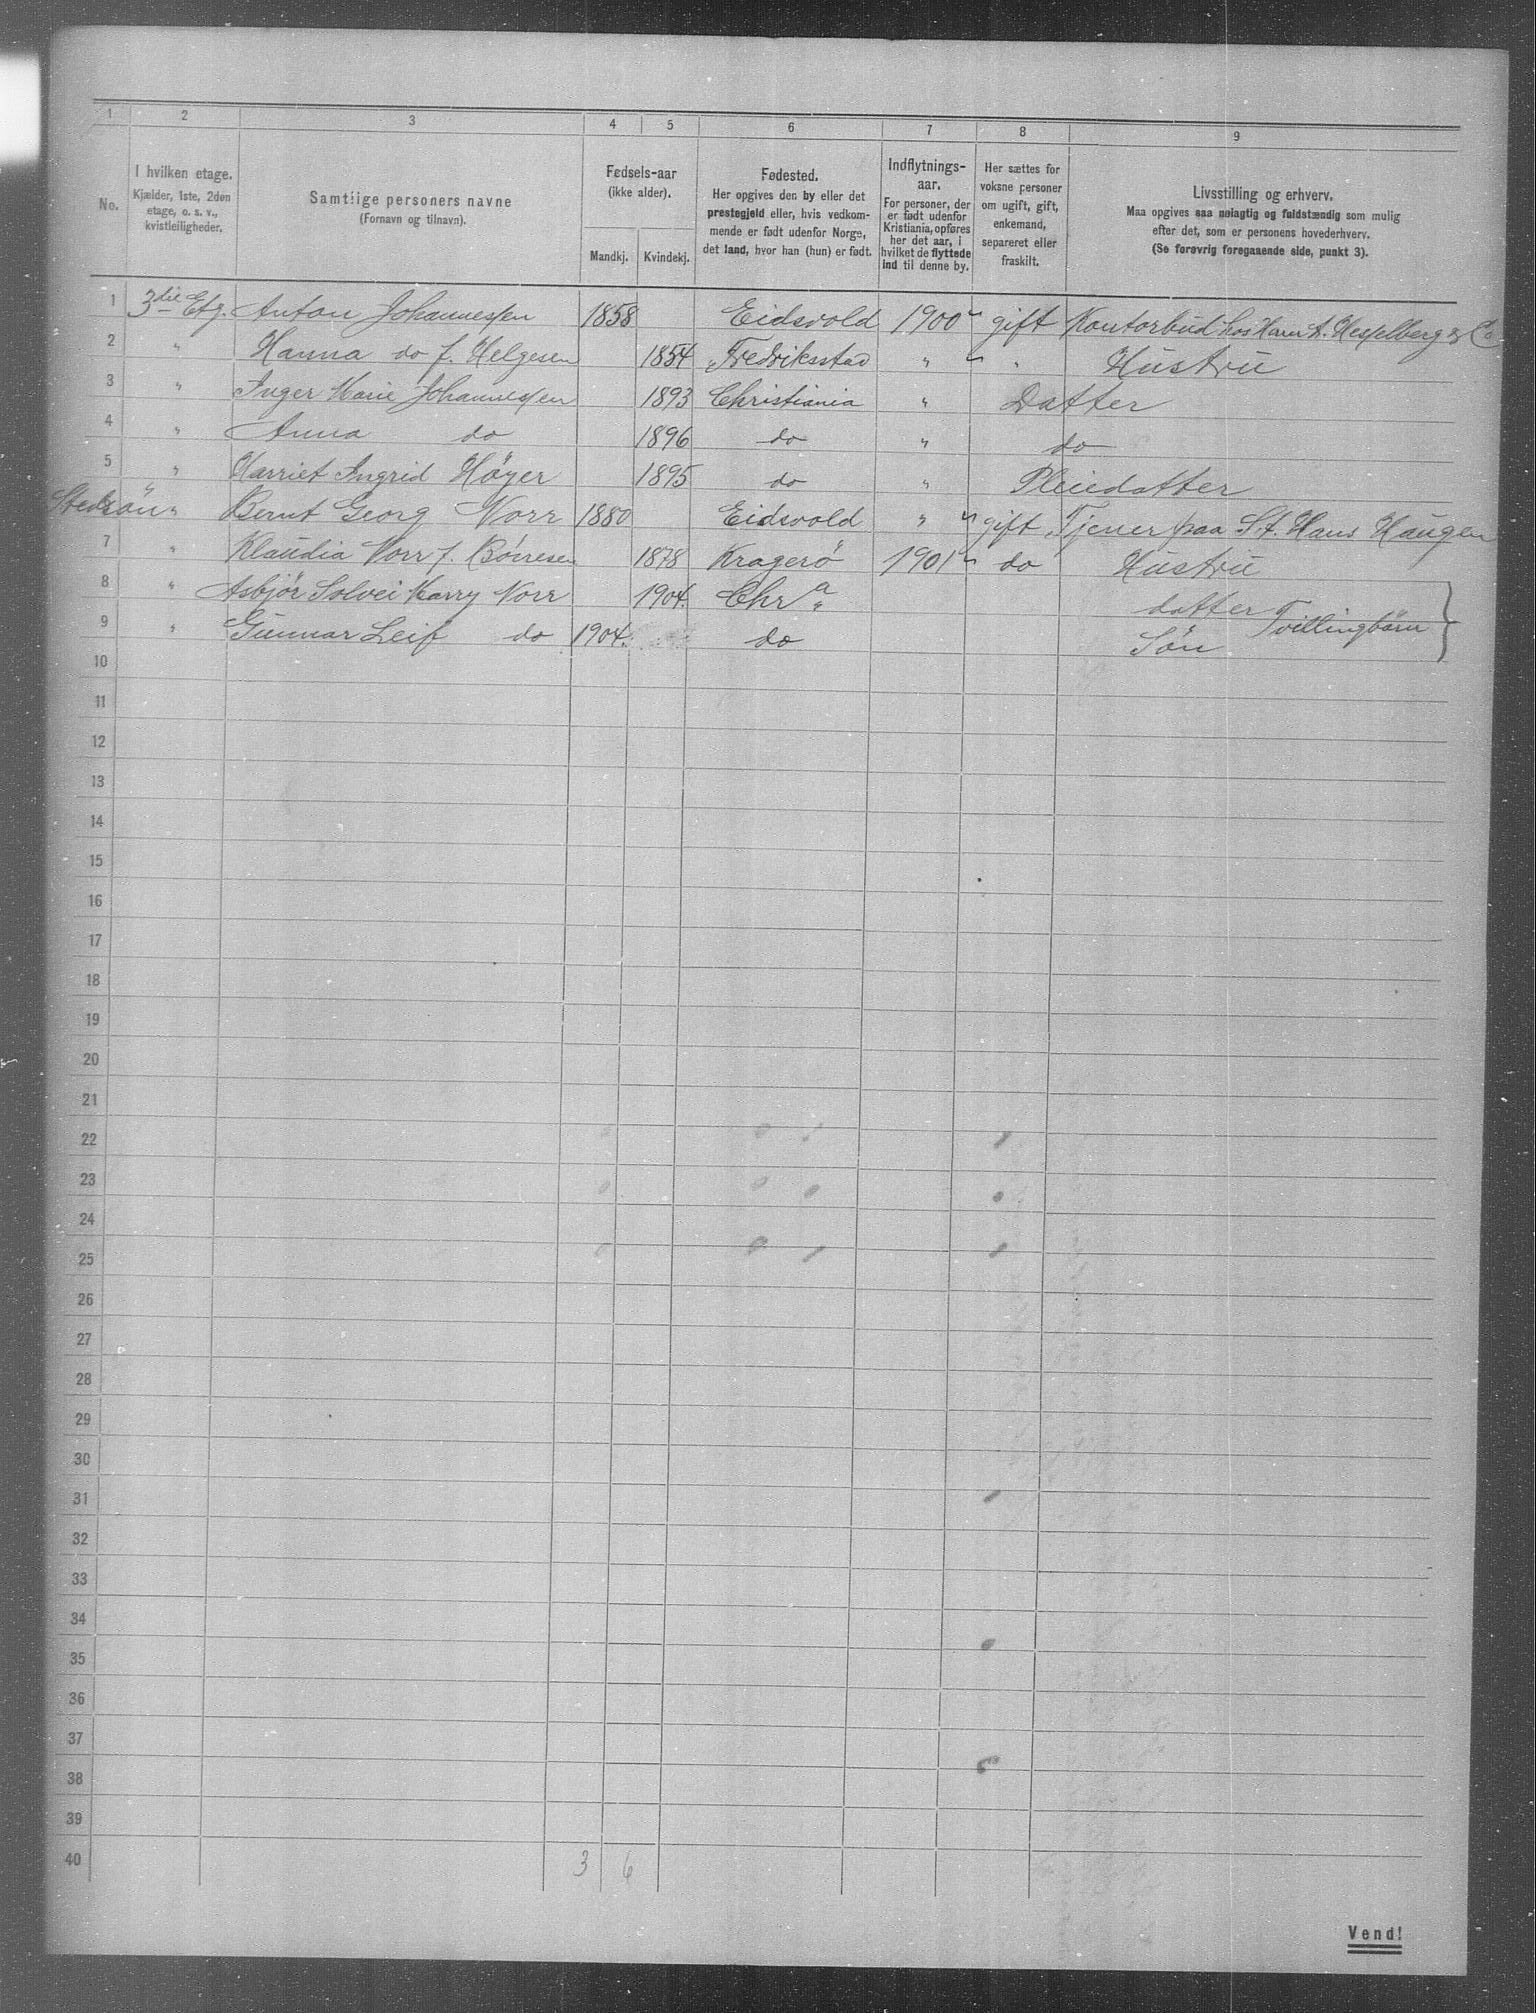 1 2 3 4 5 6 7 8 9
No. I hvilken etage. Kjælder, 1ste, 2den etage, o. s. v., kvistleiligheder. Samtlige personers navne (Fornavn og tilnavn). Fødsels-aar (ikke alder). Mandkj. Kvindekj. Fødested. Her opgives den by eller det prestegjeld eller, hvis vedkommende er født udenfor Norge, det land, hvor han (hun) er født. Indflytnings-aar. For personer, der er født udenfor Kristiania, opføres her det aar, i hvilket de flyttede ind til denne by. Her sættes for voksne personer om ugift, gift, enkemand, separeret eller fraskilt. Livsstilling og erhverv. Maa opgives saa nøiagtig og fuldstændig som mulig efter det, som er personens hovederhverv. (Se forøvrig foregaaende side, punkt 3).
1 3die Etg. Anton Johannessen 1858 Eidsvold 1900 gift Kontorbud hos Herr A. Hesselberg & Co
2 " Hanna do f. Helgesen 1854 Fredriksstad " " Hustru
3 " Inger Marie Johannessen 1893 Christiania " Datter
4 " Anna do 1896 do " do
5 " Harriet Ingrid Høyer 1895 do " Pleiedatter
Stedsön " Bernt Georg Norr 1880 Eidsvold " gift Tjener paa St. Hans Haugen
7 " Klaudia Norr f. Börresen 1878 Kragerö 1901 do Hustru
8 " Asbjör Solvei Harry Norr 1904. Chra " datter Tvillingbörn
9 " Gunnar Leif do 1904. do Sön
10
11
12
13
14
15
16
17
18
19
20
21
22
23
24
25
26
27
28
29
30
31
32
33
34
35
36
37
38
39
40 3 6
Vend!